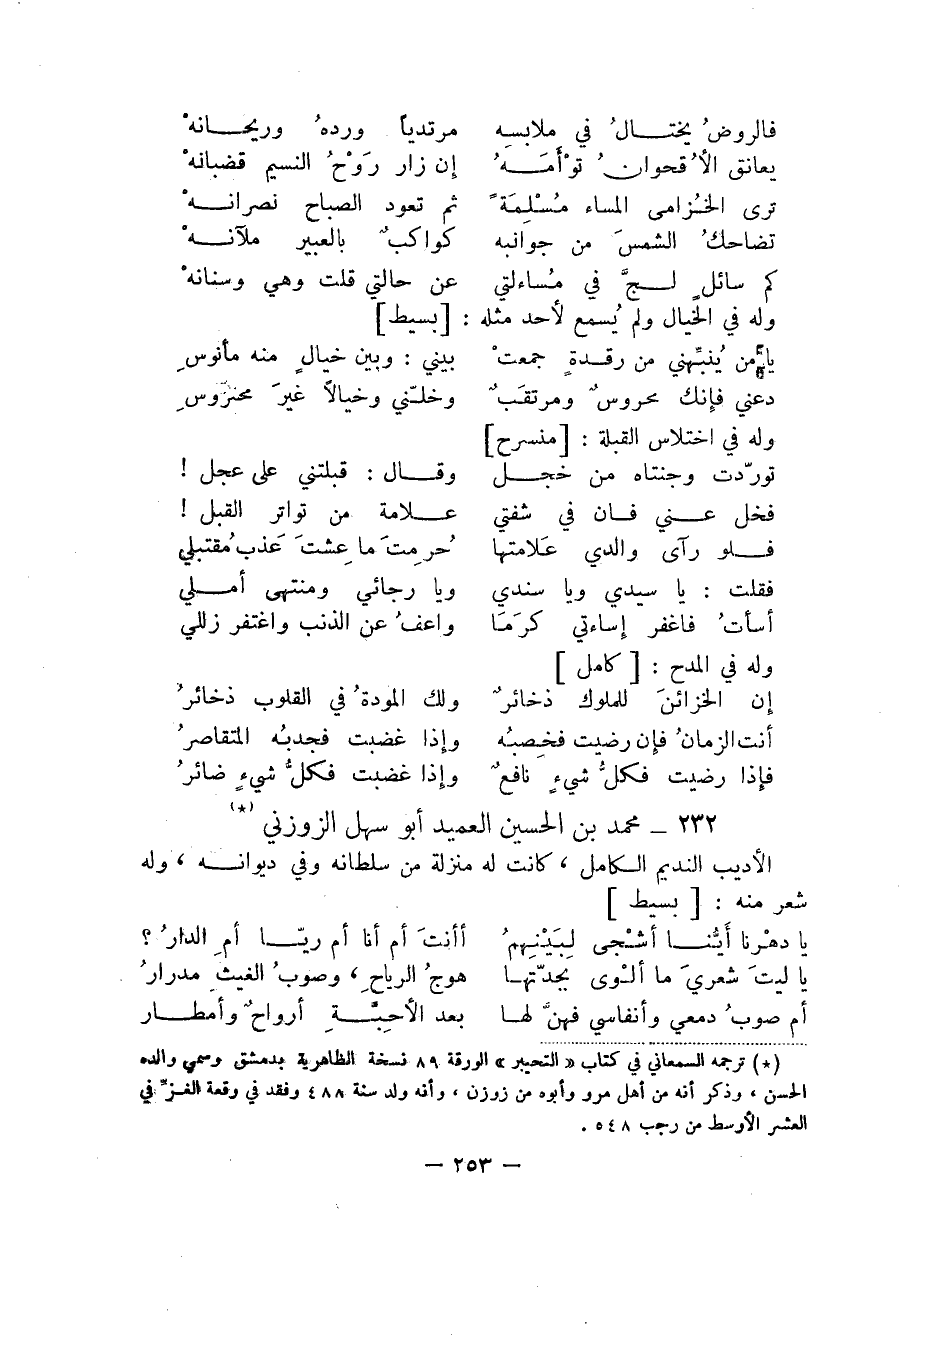 فالروضُ يختـــالُ في ملابسِه مرتدياً وردهُ وريحـــانهْ
يعانق الأُقحوانُ توْأَمَـــهُ إن زار رَوْحُ النسيم قضبانهْ
ترى الخُزامى المساء مُسْلِمَةً ثم تعود الصباح نصرانـــهْ
تضاحكُ الشمسَ من جوانبه كواكبٌ بالعبير ملآنـــهْ
كم سائلٍ لــجَّ في مُساءلتي عن حالتي قلت وهي وسنانهْ
وله في الخيال ولم يُسمع لأحد مثله : [بسيط]
يا مَن يُنبِّهني من رقدةٍ جمعتْ بيني : وبين خيالٍ منه مأنوسِ
دعني فإنك محروسٌ ومرتقَبٌ وخلّني وخيالاً غيرَ محروسِ
وله في اختلاس القبلة : [منسرح]
تورّدت وجنتاه من خجـــل وقـــال : قبلتني على عجل !
فخل عـــني فان في شفتي عـــلامة من تواتر القبل !
فـــلو رآى والدي عَلامتها حُرمتَ ما عِشتَ عَذبَ مُقتبلي
فقلت : يا سيدي ويا سندي ويا رجائي ومنتهى أمـــلي
أسأتُ فاغفر إساءتي كرَمَا واعفُ عن الذنب واغتفر زللي
وله في المدح : [ كامل ]
إن الخزائنَ للملوك ذخائرٌ ولك المودةُ في القلوب ذخائرُ
أنت الزمانُ فإن رضيت فخصبُه وإذا غضبت فجدبُه المتقاصرُ
فإذا رضيت فكلُّ شيءٍ نافعٌ وإذا غضبت فكلُّ شيءٍ ضائرُ
٢٣٢ ــ محمد بن الحسين العميد أبو سهل الزوزني (*)
الأديب النديم الـــكامل ، كانت له منزلة من سلطانه وفي ديوانـــه ، وله
شعر منه : [ بسيط ]
يا دهْرنا أَيُّنـــا أشْجى لِبَيْنِهِمُ أأنتَ أم أنا أم ريّـــا أمِ الدارُ ؟
يا ليتَ شعريَ ما ألْوى بجدّتهـا هوجُ الرياحِ ، وصوبُ الغيثِ مدرارُ
أم صوبُ دمعي وأنفاسي فهنَّ لهـا بعد الأحِبَّـــةِ أرواحٌ وأمطـــار
(*) ترجمه السمعاني في كتاب « التحبير » الورقة ٨٩ نسخة الظاهرية بدمشق وسمي والده
الحسن ، وذكر أنه من أهل مرو وأبوه من زوزن ، وأنه ولد سنة ٤٨٨ وفقد في وقعة الغـزّ في
العشر الأوسط من رجب ٥٤٨ .
— ٢٥٣ —